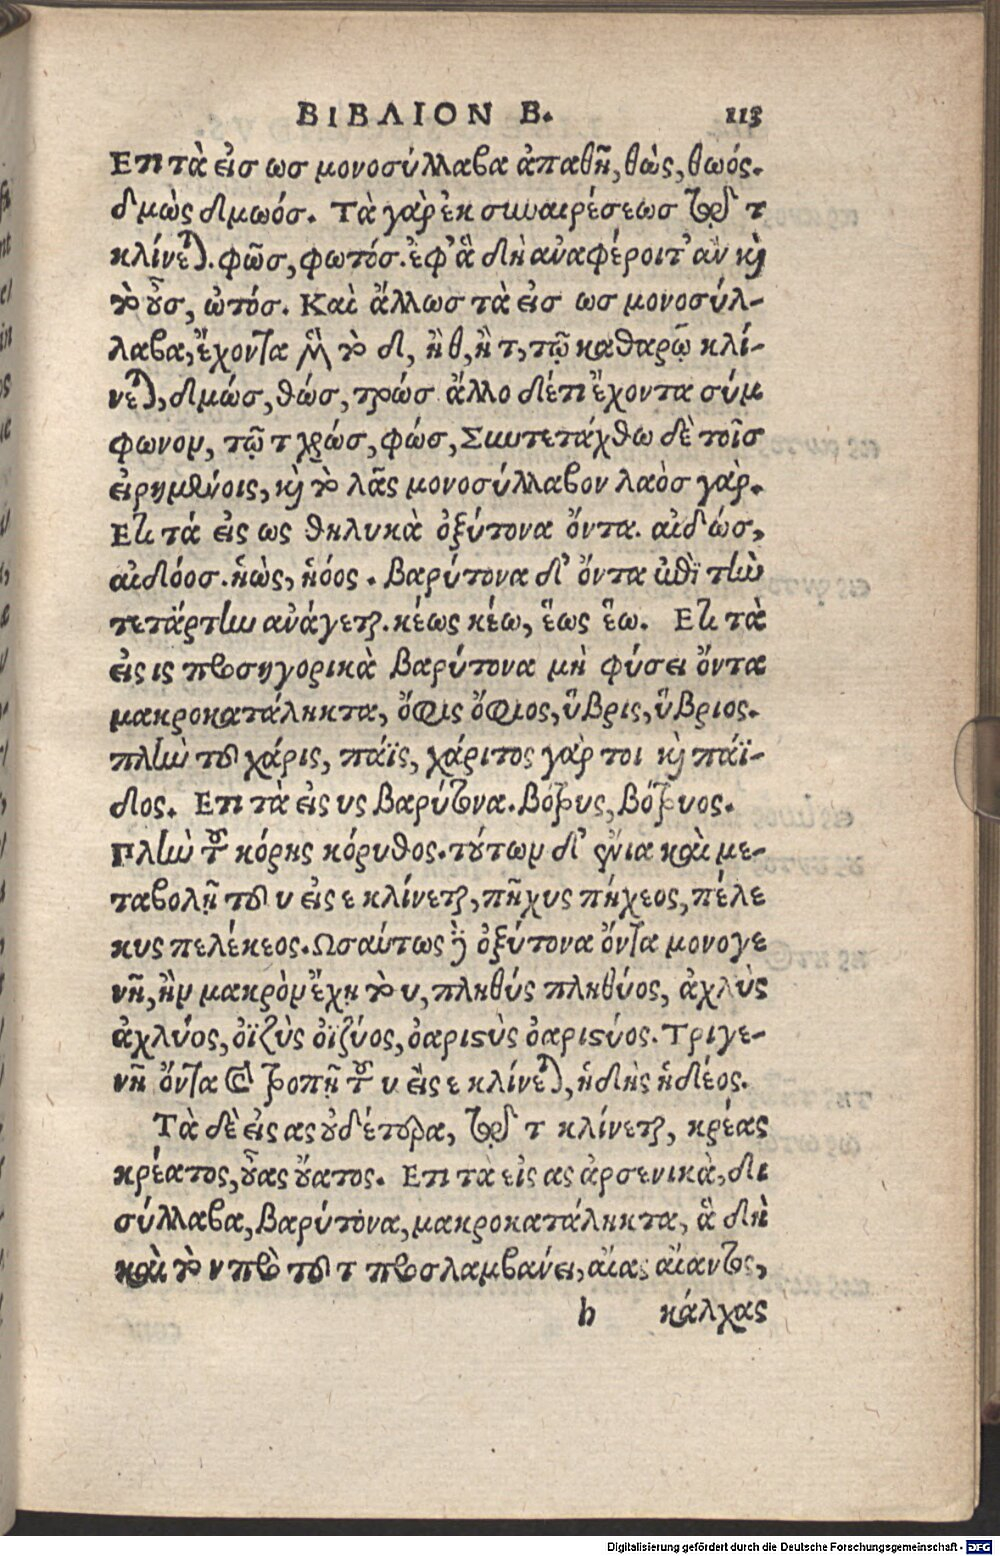 ΒΙΒΛΙΟΝ Β. 113
Ετι τὰ εἰσ ωσ μονοσύλλαβα ἀπαθῆ, θὼς, θωός.
δμὼς δμωόσ. Τὰ γὰρ ἐκ συναιρέσεωσ διὰ τ
κλίνεται. φῶσ, φωτόσ. ἐφ' ἃ δὴ ἀναφέροιτ' ἂν καὶ
τὸ οὖσ, ὠτόσ. Καὶ ἄλλωσ τὰ εἰσ ωσ μονοσύλ-
λαβα, ἔχοντα ἢ τὸ δ, ἢ θ, ἢ τ, τῷ καθαρῷ κλί-
νεται, δμώσ, θώσ, τρώσ ἄλλο δέ τι ἔχοντα σύμ
φωνον, τῷ τ χρώσ, φώσ, Συντετάχθω δὲ τοῖσ
εἰρημένοις, καὶ τὸ λᾶς μονοσύλλαβον λαὸσ γὰρ.
Ετι τά εἰς ως θηλυκὰ ὀξύτονα ὄντα. αἰδώσ,
αἰδόοσ. ἠὼς, ἠόος. Βαρύτονα δ' ὄντα ἐπὶ τὴν
τετάρτην ἀνάγεται. κέως κέω, ἕως ἕω. Ετι τὰ
εἰς ις προσηγορικὰ βαρύτονα μὴ φύσει ὄντα
μακροκατάληκτα, ὄφις ὄφιος, ὕβρις, ὕβριος.
πλὴν τοῦ χάρις, πάϊς, χάριτος γάρ τοι καὶ πάϊ-
δος. Ετι τὰ εἰς υς βαρύτονα. βότρυς, βότρυος.
Πλὴν τοῦ κόρης κόρυθος. τούτων δ' ἔνια καὶ με-
ταβολῇ τοῦ υ εἰς ε κλίνεται, πῆχυς πήχεος, πέλε
κυς πελέκεος. Ωσαύτως καὶ ὀξύτονα ὄντα μονογε
νῆ, ἢν μακρὸν ἔχῃ τὸ υ, πληθύς πληθύος, ἀχλὺς
ἀχλύος, ὀϊζὺς ὀϊζύος, ὀαριστὺς ὀαριστύος. Τριγε-
νῆ ὄντα δὲ τροπῇ τοῦ υ εἰς ε κλίνεται, ἡδὴς ἡδέος.
Τὰ δὲ εἰς ας οὐδέτερα, διὰ τ κλίνεται, κρέας
κρέατος, οὖας οὔατος. Ετι τὰ εἰς ας ἀρσενικὰ, δι
σύλλαβα, βαρύτονα, μακροκατάληκτα, ἃ δὴ
καὶ τὸ ν πρὸ τοῦ τ προσλαμβάνει, αἴας αἴαντος,
h κάλχας
Digitalisierung gefördert durch die Deutsche Forschungsgemeinschaft - DFG